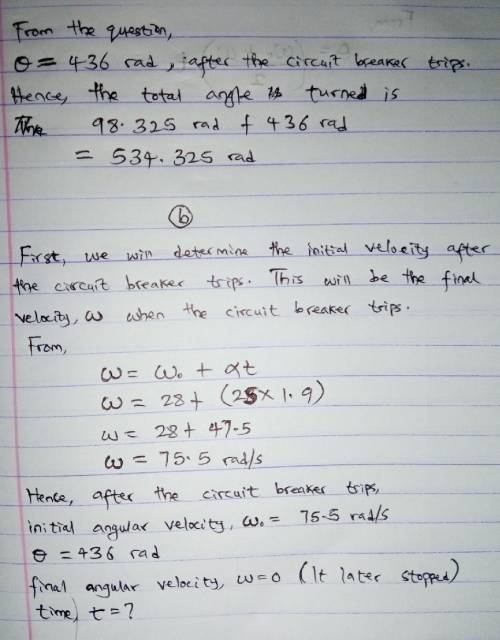 From the question,
θ = 436 rad, after the circuit breaker trips.
Hence, the total angle turned is
98.325 rad + 436 rad
= 534.325 rad
(b)
First, we will determine the initial velocity after
the circuit breaker trips. This will be the final
velocity, ω when the circuit breaker trips.
From,
ω = ω₀ + αt
ω = 28 + (25 × 1.9)
ω = 28 + 47.5
ω = 75.5 rad/s
Hence, after the circuit breaker trips,
initial angular velocity, ω₀ = 75.5 rad/s
θ = 436 rad
final angular velocity, ω=0 (It later stopped)
time, t = ?